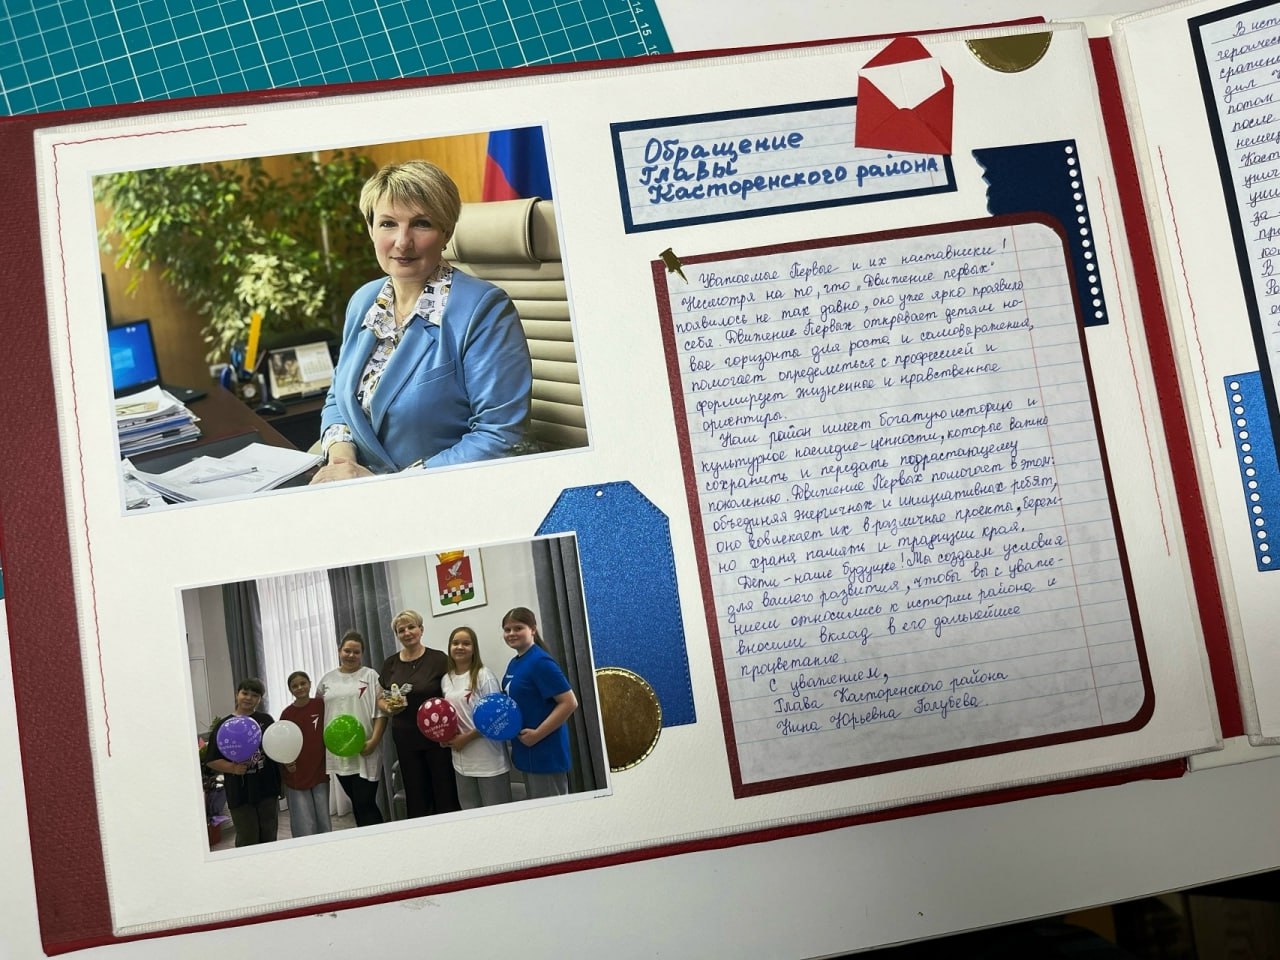 14 15 16
Обращение
Главы
Касторенского района
Уважаемые Первые и их наставники!
Несмотря на то, что „Движение первых"
появилось не так давно, оно уже ярко проявило
себя. Движение Первых открывает детям но-
вые горизонты для роста и самовыражения,
помогает определиться с профессией и
формирует жизненные и нравственные
ориентиры.
Наш район имеет богатую историю и
культурное наследие-ценности, которые важно
сохранить и передать подрастающему
поколению. Движение Первых помогает в этом:
объединяя энергичных и инициативных ребят,
оно вовлекает их в различные проекты, береж-
но храня память и традиции края.
Дети-наше будущее! Мы создаем условия
для вашего развития, чтобы вы с уваже-
нием относились к истории района и
вносили вклад в его дальнейшее
процветание.
С уважением,
Глава Касторенского района
Нина Юрьевна Голубева.
В
потом
после
за
В